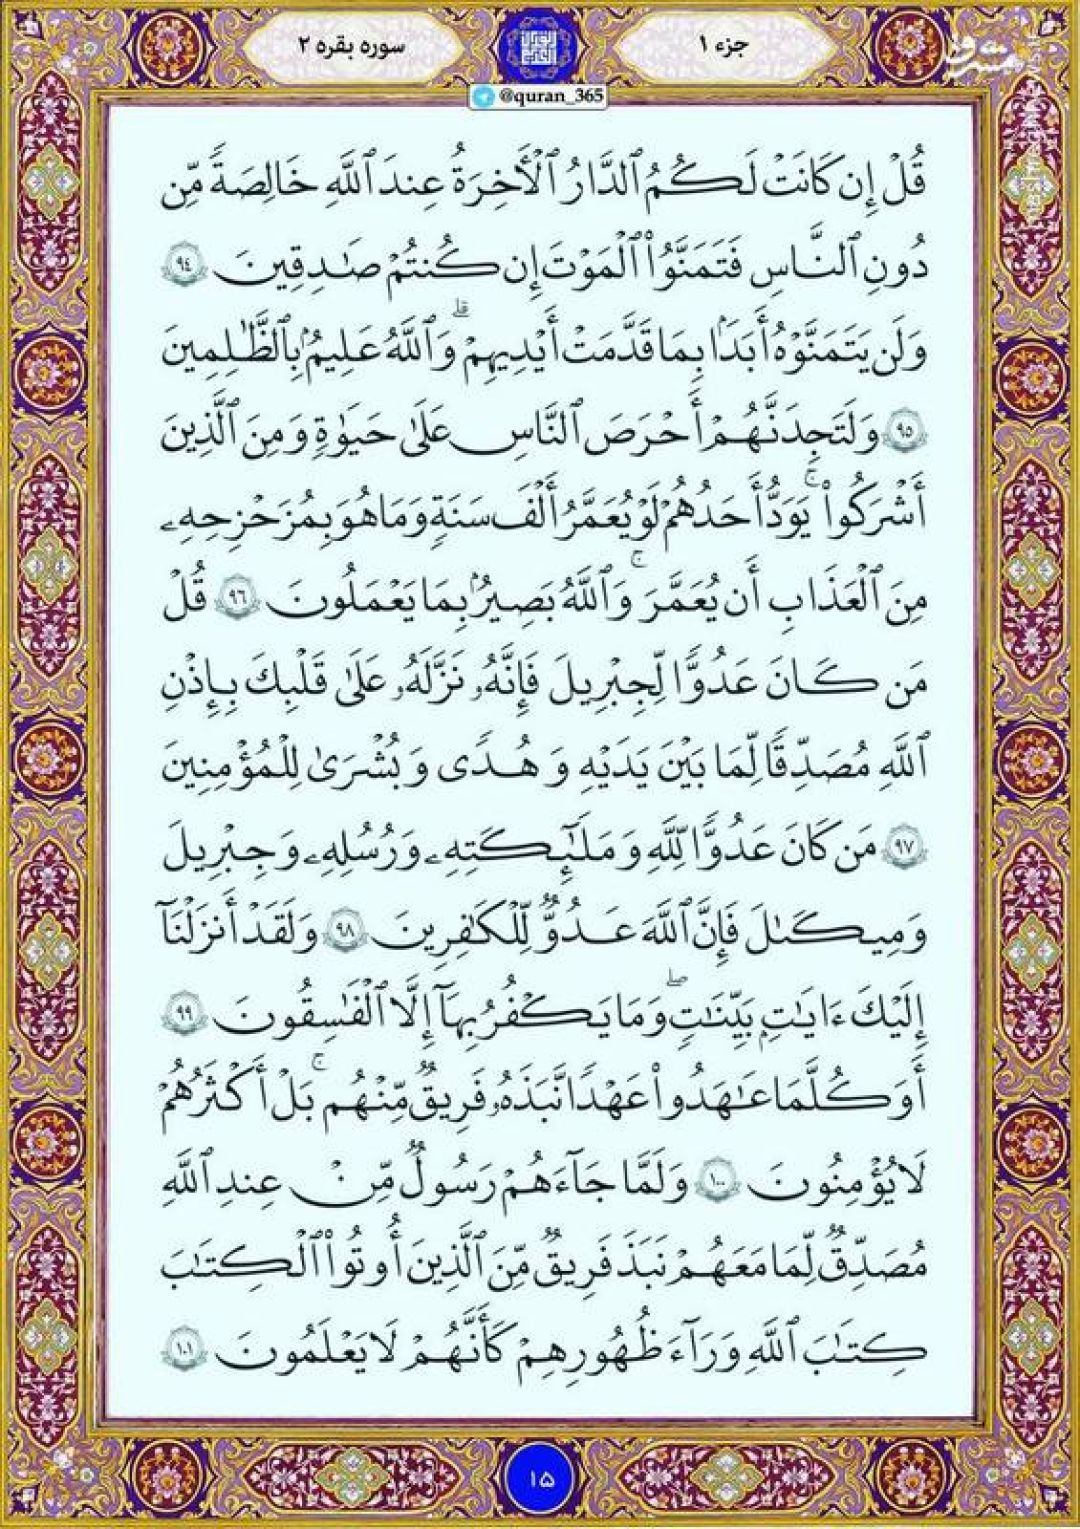 جزء ۱
سوره بقره ۲
@quran_365
قُلْ إِن كَانَتْ لَكُمُ ٱلدَّارُ ٱلْأَخِرَةُ عِندَ ٱللَّهِ خَالِصَةً مِّن
دُونِ ٱلنَّاسِ فَتَمَنَّوُا۟ ٱلْمَوْتَ إِن كُنتُمْ صَٰدِقِينَ ٩٤
وَلَن يَتَمَنَّوْهُ أَبَدًۢا بِمَا قَدَّمَتْ أَيْدِيهِمْ ۗ وَٱللَّهُ عَلِيمٌۢ بِٱلظَّٰلِمِينَ
٩٥ وَلَتَجِدَنَّهُمْ أَحْرَصَ ٱلنَّاسِ عَلَىٰ حَيَوٰةٍ وَمِنَ ٱلَّذِينَ
أَشْرَكُوا۟ ۚ يَوَدُّ أَحَدُهُمْ لَوْ يُعَمَّرُ أَلْفَ سَنَةٍ وَمَا هُوَ بِمُزَحْزِحِهِۦ
مِنَ ٱلْعَذَابِ أَن يُعَمَّرَ ۗ وَٱللَّهُ بَصِيرٌۢ بِمَا يَعْمَلُونَ ٩٦ قُلْ
مَن كَانَ عَدُوًّا لِّجِبْرِيلَ فَإِنَّهُۥ نَزَّلَهُۥ عَلَىٰ قَلْبِكَ بِإِذْنِ
ٱللَّهِ مُصَدِّقًا لِّمَا بَيْنَ يَدَيْهِ وَهُدًى وَبُشْرَىٰ لِلْمُؤْمِنِينَ
٩٧ مَن كَانَ عَدُوًّا لِّلَّهِ وَمَلَٰٓئِكَتِهِۦ وَرُسُلِهِۦ وَجِبْرِيلَ
وَمِيكَىٰلَ فَإِنَّ ٱللَّهَ عَدُوٌّ لِّلْكَٰفِرِينَ ٩٨ وَلَقَدْ أَنزَلْنَآ
إِلَيْكَ ءَايَٰتٍۭ بَيِّنَٰتٍ ۖ وَمَا يَكْفُرُ بِهَآ إِلَّا ٱلْفَٰسِقُونَ ٩٩
أَوَكُلَّمَا عَٰهَدُوا۟ عَهْدًا نَّبَذَهُۥ فَرِيقٌ مِّنْهُم ۚ بَلْ أَكْثَرُهُمْ
لَا يُؤْمِنُونَ ١٠٠ وَلَمَّا جَآءَهُمْ رَسُولٌ مِّنْ عِندِ ٱللَّهِ
مُصَدِّقٌ لِّمَا مَعَهُمْ نَبَذَ فَرِيقٌ مِّنَ ٱلَّذِينَ أُوتُوا۟ ٱلْكِتَٰبَ
كِتَٰبَ ٱللَّهِ وَرَآءَ ظُهُورِهِمْ كَأَنَّهُمْ لَا يَعْلَمُونَ ١٠١
۱۵